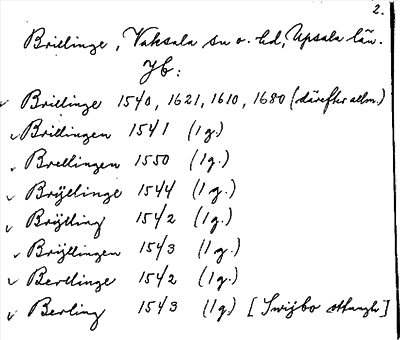 2.
Brillinge, Vaksala sn o. hd, Upsala län.
Jb:
Brillinge 1540, 1621, 1610, 1680 (därefter allm.)
Brillingen 1541 (1 g.)
Brellingen 1550 (1 g.)
Brijllinge 1544 (1 g.)
Brijlling 1542 (1 g.)
Brijllingen 1543 (1 g.)
Berllinge 1542 (1 g.)
Berling 1543 (1 g.) [